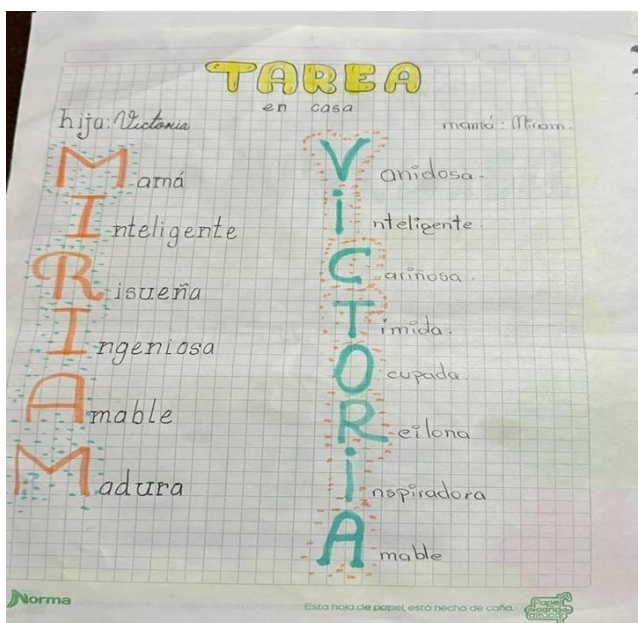 TAREA
en casa
hija: Victoria
mamá: Miriam.
Mamá
Inteligente
Risueña
Ingeniosa
Amable
Madura
Vanidosa.
inteligente.
Cariñosa.
Timida.
Ocupada.
Reilona
inspiradora
Amable
Norma
Esta hoja de papel está hecha de caña.
Papel de caña de azúcar